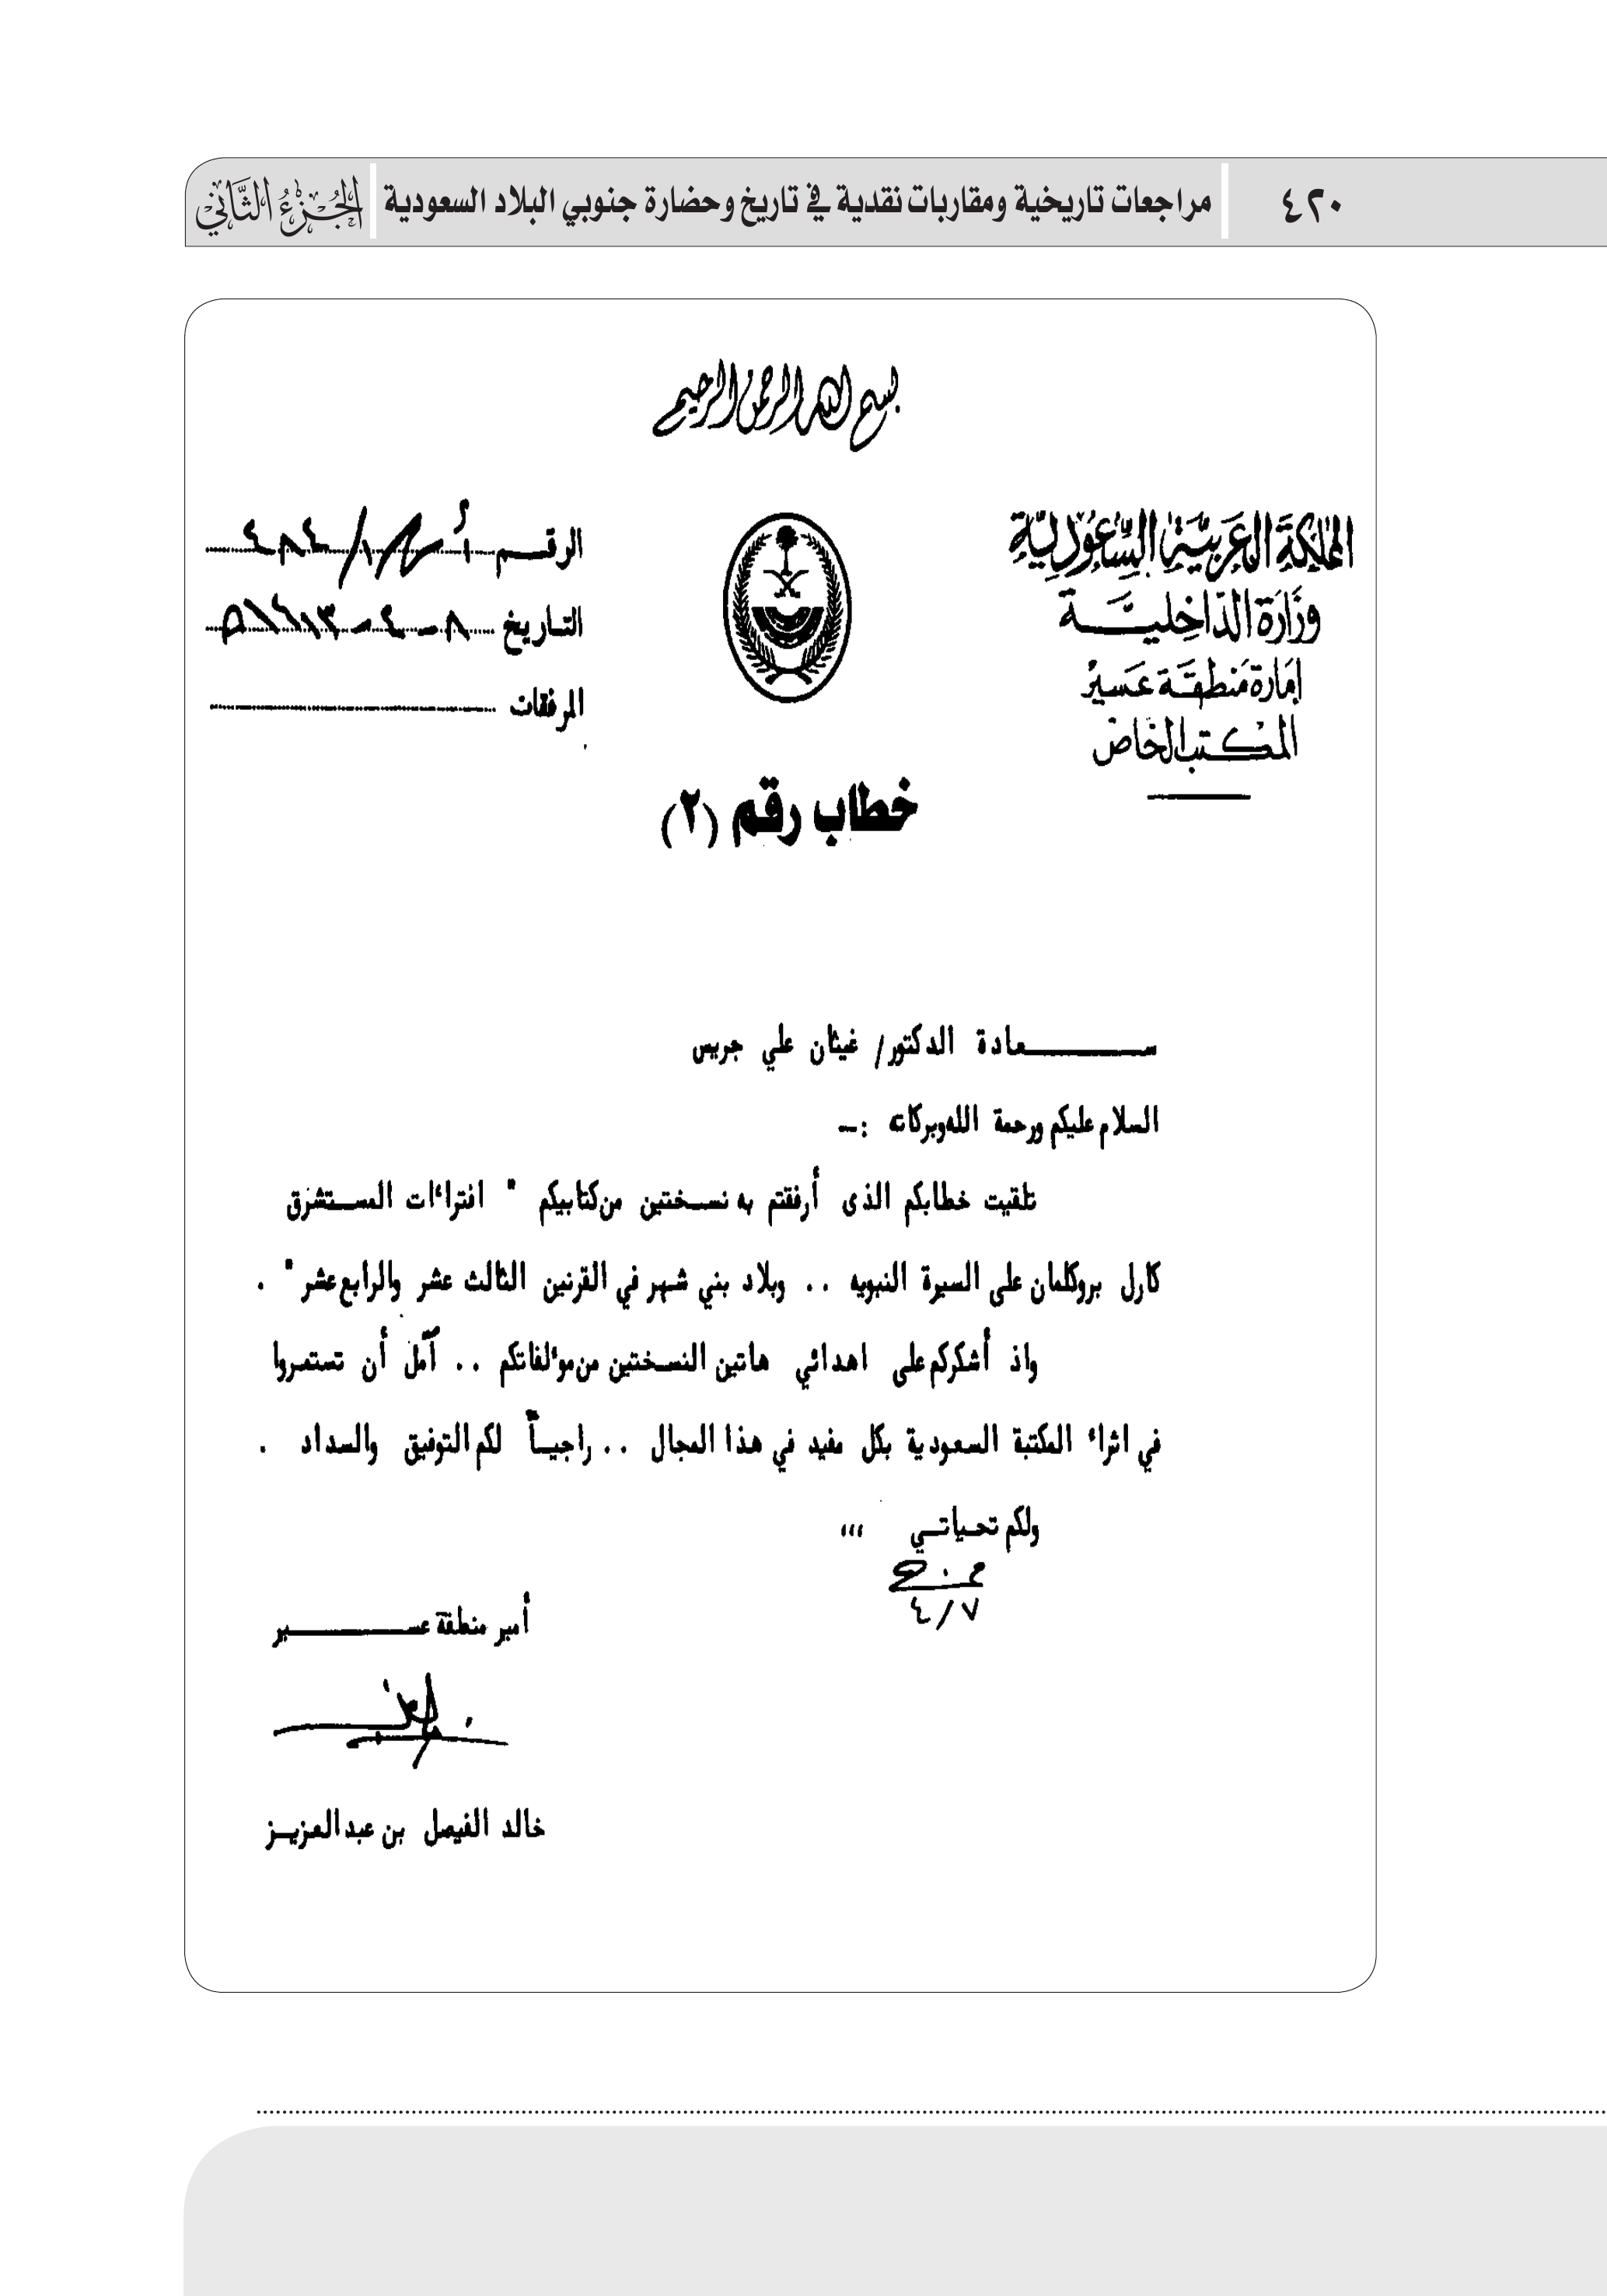 ٤٢٠
مراجعات تاريخية ومقاربات نقدية في تاريخ وحضارة جنوبي البلاد السعودية
الجُزءُ الثَّاني
بسم الله الرحمن الرحيم
المملكة العربية السعودية
وزارة الداخلية
إمارة منطقة عسير
المكتب الخاص
الرقم
التاريخ ٨ - ٤ -
المرفقات
خطاب رقم (٢)
سعادة الدكتور/ غيثان علي جريس
السلام عليكم ورحمة الله وبركاته :-
تلقيت خطابكم الذى أرفقتم به نسختين من كتابيكم " افتراءات المستشرق
كارل بروكلمان على السيرة النبويه .. وبلاد بني شهر في القرنين الثالث عشر والرابع عشر " .
واذ أشكركم على اهدائي هاتين النسختين من موءلفاتكم .. آمل أن تستمروا
في اثراء المكتبة السعودية بكل مفيد في هذا المجال .. راجياً لكم التوفيق والسداد .
ولكم تحياتي ،،،
٤/٧
أمير منطقة عسير
خالد الفيصل بن عبدالعزيز